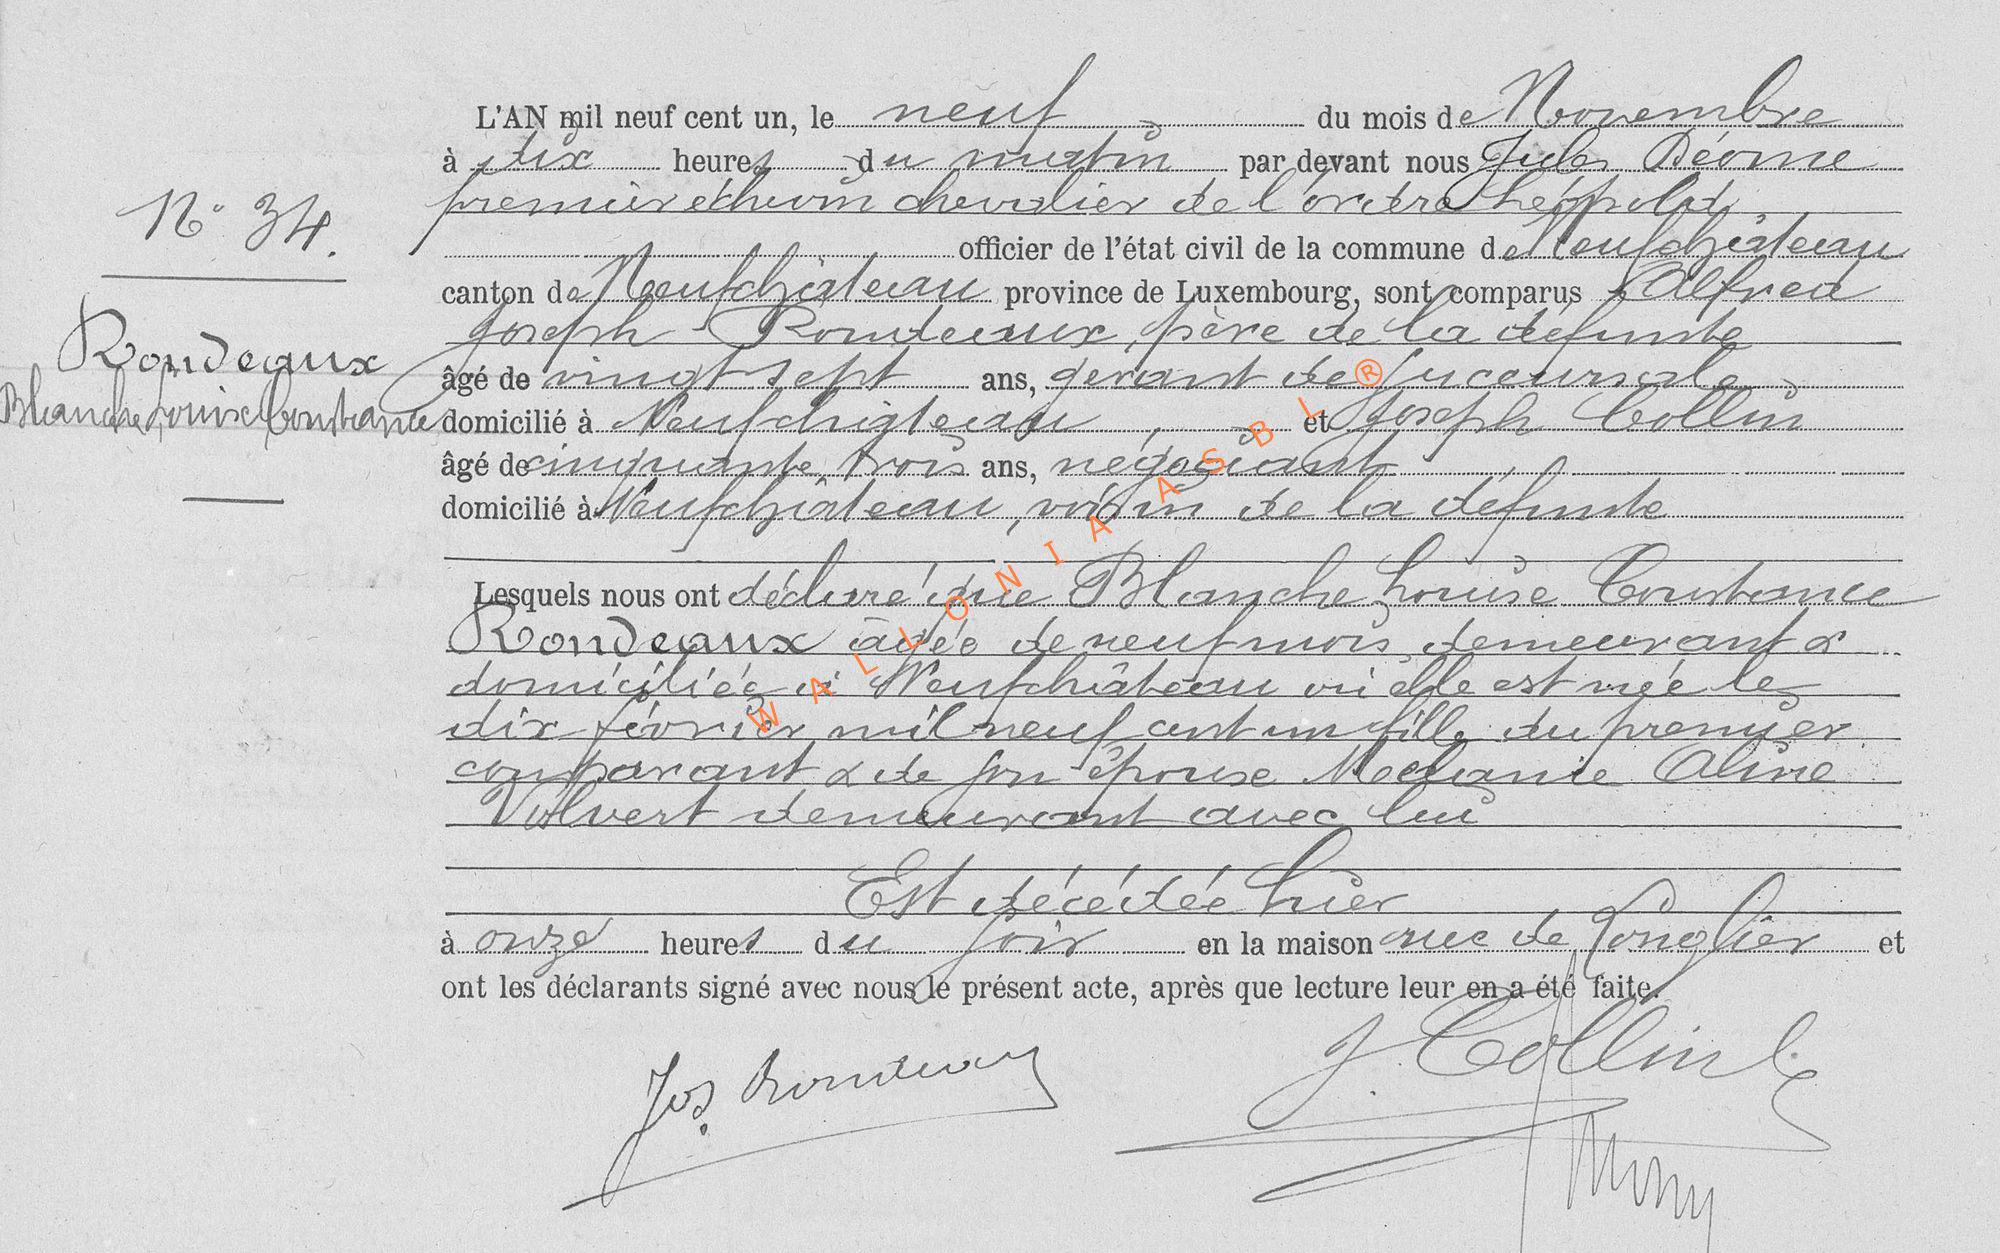 L'AN mil neuf cent un, le neuf du mois de Novembre
à dix heures du matin par devant nous Jules Déome
premier échevin chevalier de l'ordre Léopold
officier de l'état civil de la commune de Neufchâteau
canton de Neufchâteau province de Luxembourg, sont comparus Alfred
Joseph Rondeaux, père de la défunte
âgé de vingt sept ans, gérant de succursale
domicilié à Neufchâteau, et Joseph Collin
âgé de cinquante trois ans, négociant,
domicilié à Neufchâteau, voisin de la défunte
N° 34.
Rondeaux
Blanche Louise Constance
Lesquels nous ont déclaré que Blanche Louise Constance
Rondeaux âgée de neuf mois, demeurant &
domiciliée à Neufchâteau où elle est née le
dix février mil neuf cent un fille du premier
comparant & de son épouse Mélanie Aline
Volvert demeurant avec lui
Est décédée hier
à onze heures du soir en la maison rue de Longlier et
ont les déclarants signé avec nous le présent acte, après que lecture leur en a été faite.
Jos Rondeaux
J. Collin
WALLONIA ASBL®